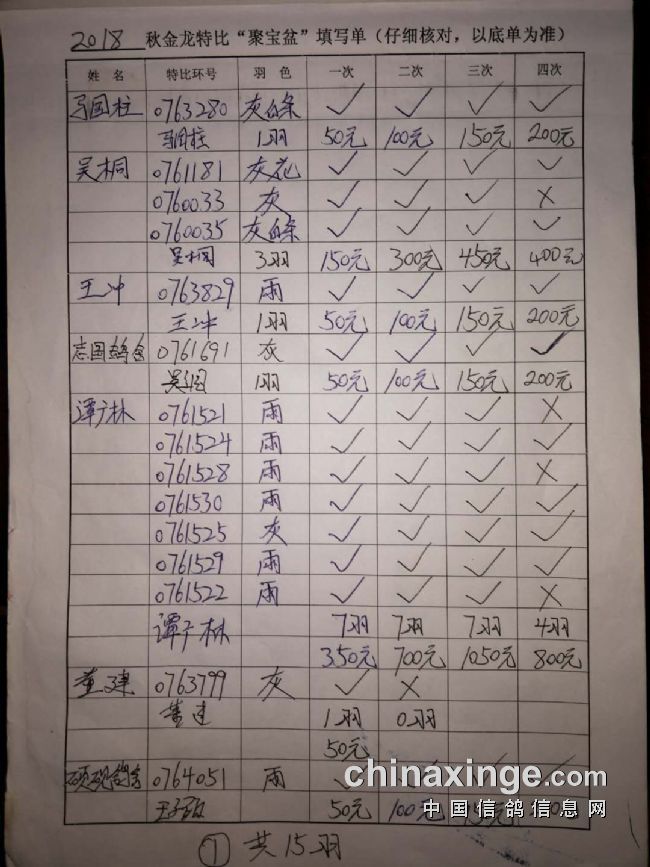 2018 秋金龙特比“聚宝盆”填写单（仔细核对，以底单为准）
姓 名 特比环号 羽 色 一次 二次 三次 四次
马国柱 0763280 灰白条 ✓ ✓ ✓ ✓
马国柱 1羽 50元 100元 150元 200元
吴桐 0761181 灰花 ✓ ✓ ✓ ✓
0760033 灰 ✓ ✓ ✓ ×
0760035 灰白条 ✓ ✓ ✓ ✓
吴桐 3羽 150元 300元 450元 400元
王冲 0763829 雨 ✓ ✓ ✓ ✓
王冲 1羽 50元 100元 150元 200元
志国鸽舍 0761691 灰 ✓ ✓ ✓ ✓
1羽 50元 100元 150元 200元
谭广林 0761521 雨 ✓ ✓ ✓ ×
0761524 雨 ✓ ✓ ✓ ✓
0761528 雨 ✓ ✓ ✓ ×
0761530 雨 ✓ ✓ ✓ ✓
0761525 灰 ✓ ✓ ✓ ✓
0761529 雨 ✓ ✓ ✓ ✓
0761522 雨 ✓ ✓ ✓ ×
谭广林 7羽 7羽 7羽 4羽
350元 700元 1050元 800元
董建 0763799 灰 ✓ ×
董建 1羽 0羽
50元
0764051 雨 ✓ ✓ ✓ ✓
50元 100元
chinaxinge.com
中国信鸽信息网
① 共15羽